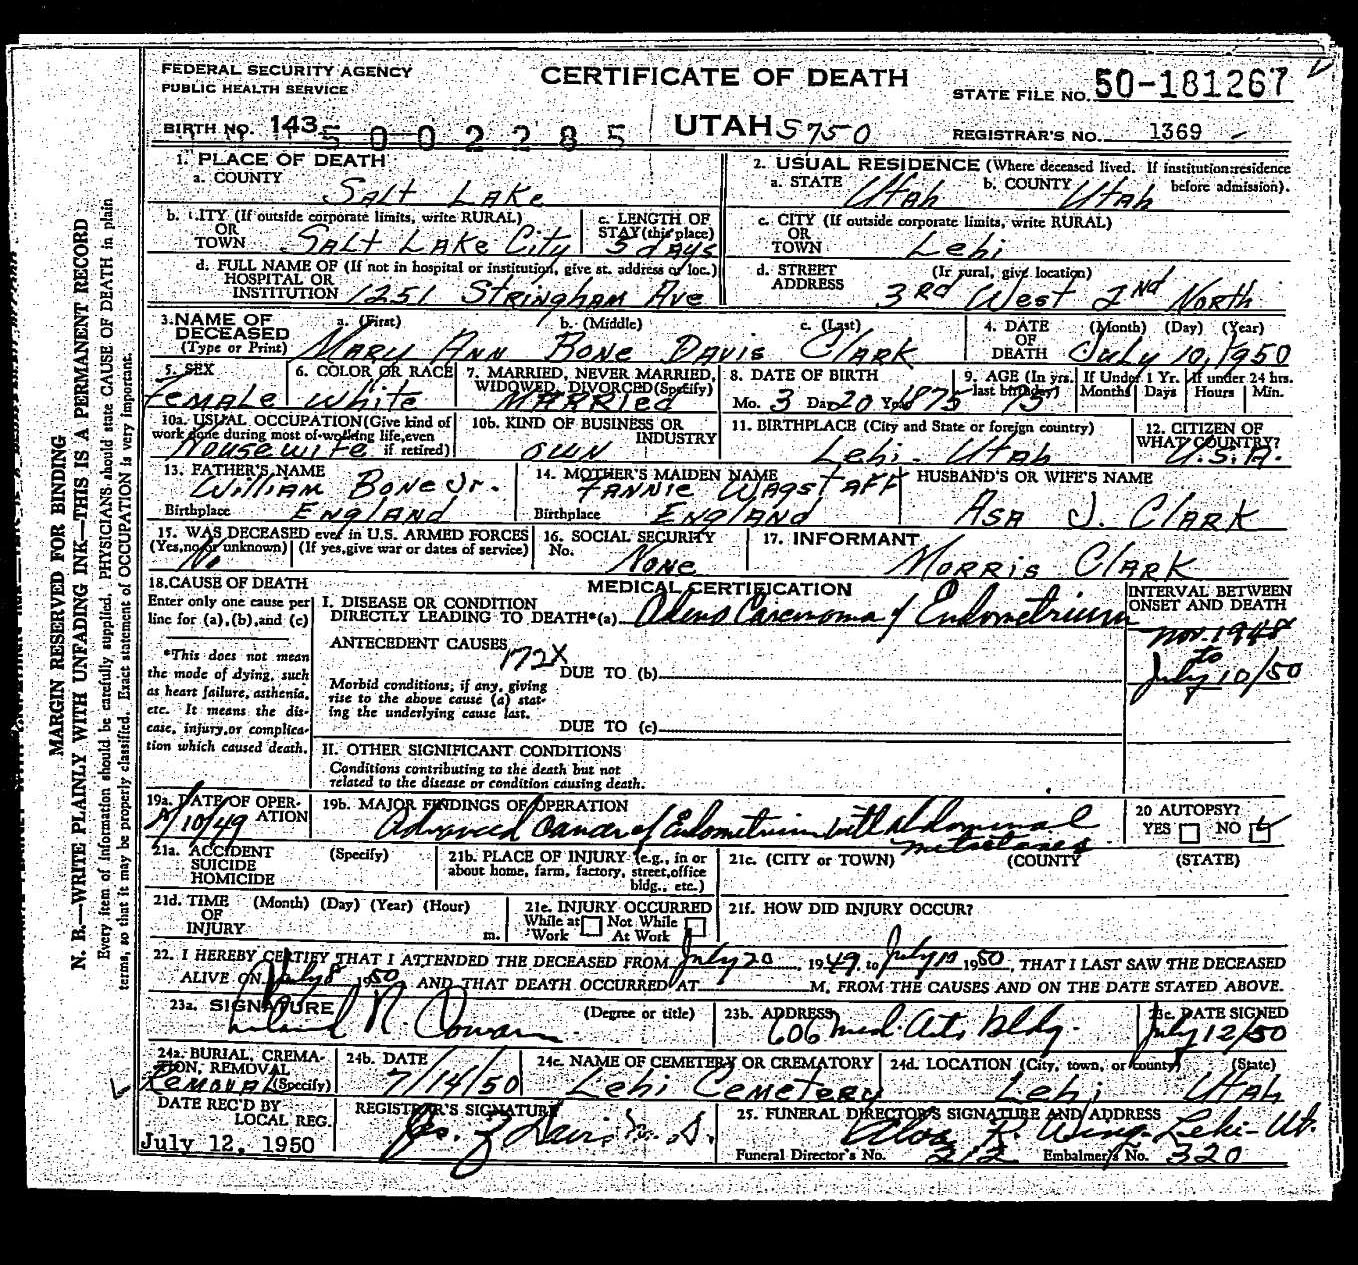 FEDERAL SECURITY AGENCY
PUBLIC HEALTH SERVICE
CERTIFICATE OF DEATH
STATE FILE NO. 50-181267
BIRTH NO. 143 5002285
UTAH S750
REGISTRAR'S NO. 1369
MARGIN RESERVED FOR BINDING
N. B.—WRITE PLAINLY WITH UNFADING INK—THIS IS A PERMANENT RECORD
Every item of information should be carefully supplied. PHYSICIANS should state CAUSE OF DEATH in plain
terms, so that it may be properly classified. Exact statement of OCCUPATION is very important.
1. PLACE OF DEATH
a. COUNTY Salt Lake
2. USUAL RESIDENCE (Where deceased lived. If institution: residence before admission).
a. STATE Utah b. COUNTY Utah
b. CITY (If outside corporate limits, write RURAL) OR TOWN Salt Lake City
c. LENGTH OF STAY (this place) 5 days
c. CITY (If outside corporate limits, write RURAL) OR TOWN Lehi
d. FULL NAME OF (If not in hospital or institution, give st. address or loc.) HOSPITAL OR INSTITUTION 1251 Stringham Ave
d. STREET ADDRESS (If rural, give location) 3rd West 2nd North
3. NAME OF DECEASED (Type or Print) a. (First) b. (Middle) c. (Last) Mary Ann Bone Davis Clark
4. DATE OF DEATH (Month) (Day) (Year) July 10, 1950
5. SEX Female
6. COLOR OR RACE White
7. MARRIED, NEVER MARRIED, WIDOWED, DIVORCED (Specify) MARRIED
8. DATE OF BIRTH Mo. 3 Da. 20 Yr. 1875
9. AGE (In yrs. last birthday) 75 If Under 1 Yr. Months Days If under 24 hrs. Hours Min.
10a. USUAL OCCUPATION (Give kind of work done during most of working life, even if retired) Housewife
10b. KIND OF BUSINESS OR INDUSTRY own
11. BIRTHPLACE (City and State or foreign country) Lehi - Utah
12. CITIZEN OF WHAT COUNTRY? U.S.A.
13. FATHER'S NAME William Bone Jr.
Birthplace England
14. MOTHER'S MAIDEN NAME Fannie Wagstaff
Birthplace England
HUSBAND'S OR WIFE'S NAME
Asa J. Clark
15. WAS DECEASED ever in U.S. ARMED FORCES
(Yes, no, or unknown) (If yes, give war or dates of service) No
16. SOCIAL SECURITY No. None
17. INFORMANT Morris Clark
18. CAUSE OF DEATH
Enter only one cause per line for (a), (b), and (c)
*This does not mean the mode of dying, such as heart failure, asthenia, etc. It means the disease, injury, or complication which caused death.
MEDICAL CERTIFICATION
I. DISEASE OR CONDITION DIRECTLY LEADING TO DEATH*(a) Adeno Carcinoma of Endometrium
INTERVAL BETWEEN ONSET AND DEATH
Nov. 1948 to July 10/50
ANTECEDENT CAUSES 172X
DUE TO (b)
Morbid conditions, if any, giving rise to the above cause (a) stating the underlying cause last.
DUE TO (c)
II. OTHER SIGNIFICANT CONDITIONS
Conditions contributing to the death but not related to the disease or condition causing death.
19a. DATE OF OPERATION /10/49
19b. MAJOR FINDINGS OF OPERATION Advanced Cancer of Endometrium with abdominal metastases.
20 AUTOPSY? YES NO
21a. ACCIDENT SUICIDE HOMICIDE (Specify)
21b. PLACE OF INJURY (e.g., in or about home, farm, factory, street, office bldg., etc.)
21c. (CITY or TOWN) (COUNTY) (STATE)
21d. TIME OF INJURY (Month) (Day) (Year) (Hour) m.
21e. INJURY OCCURRED While at Work Not While At Work
21f. HOW DID INJURY OCCUR?
22. I HEREBY CERTIFY THAT I ATTENDED THE DECEASED FROM July 20, 1949, to July 10 1950, THAT I LAST SAW THE DECEASED
ALIVE ON July 8 1950 AND THAT DEATH OCCURRED AT M. FROM THE CAUSES AND ON THE DATE STATED ABOVE.
23a. SIGNATURE (Degree or title)
23b. ADDRESS 606 Med. Arts bldg.
23c. DATE SIGNED July 12/50
24a. BURIAL, CREMATION, REMOVAL (Specify) Removal
24b. DATE 7/14/50
24c. NAME OF CEMETERY OR CREMATORY Lehi Cemetery
24d. LOCATION (City, town, or county) (State) Lehi Utah
DATE REC'D BY LOCAL REG.
July 12, 1950
REGISTRAR'S SIGNATURE
25. FUNERAL DIRECTOR'S SIGNATURE AND ADDRESS
R. Wing Lehi - Ut.
Funeral Director's No. 212 Embalmer's No. 320